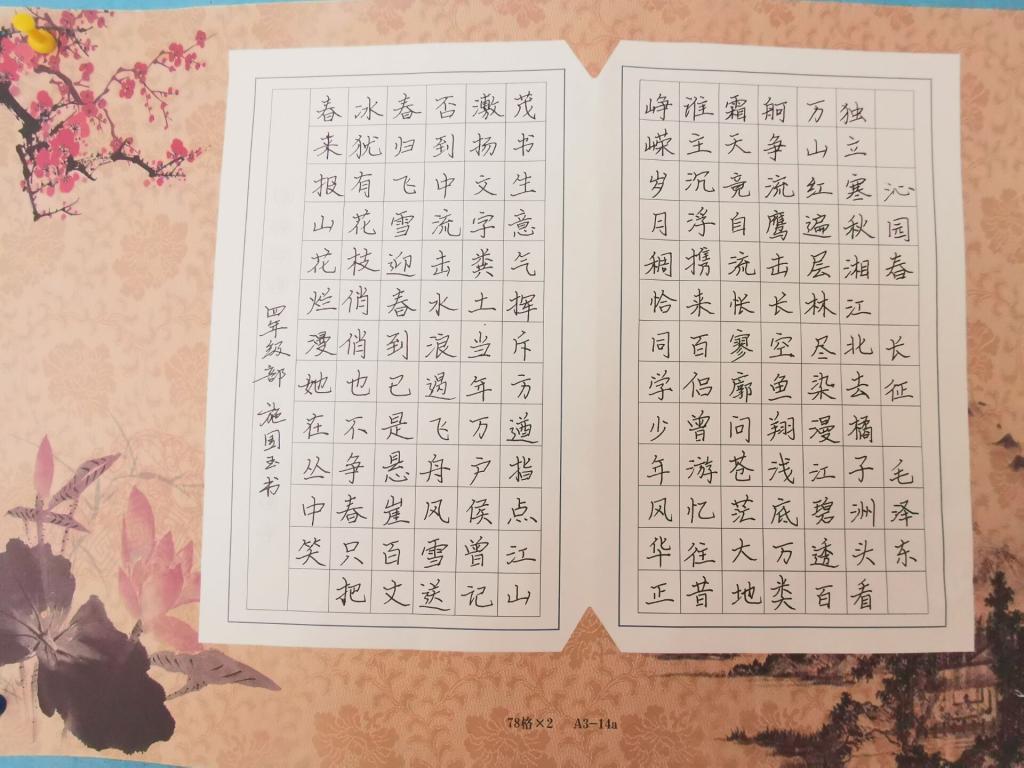 沁园春 长征 毛泽东
独立寒秋湘江北去橘子洲头看
万山红遍层林尽染漫江碧透百
舸争流鹰击长空鱼翔浅底万类
霜天竟自流怅寥廓问苍茫大地
谁主沉浮携来百侣曾游忆往昔
峥嵘岁月稠恰同学少年风华正
茂书生意气挥斥方遒指点江山
激扬文字粪土当年万户侯曾记
否到中流击水浪遏飞舟风雪送
春归飞雪迎春到已是悬崖百丈
冰犹有花枝俏俏也不争春只把
春来报山花烂漫她在丛中笑
四年级部 施国玉书
78格×2 A3-14a